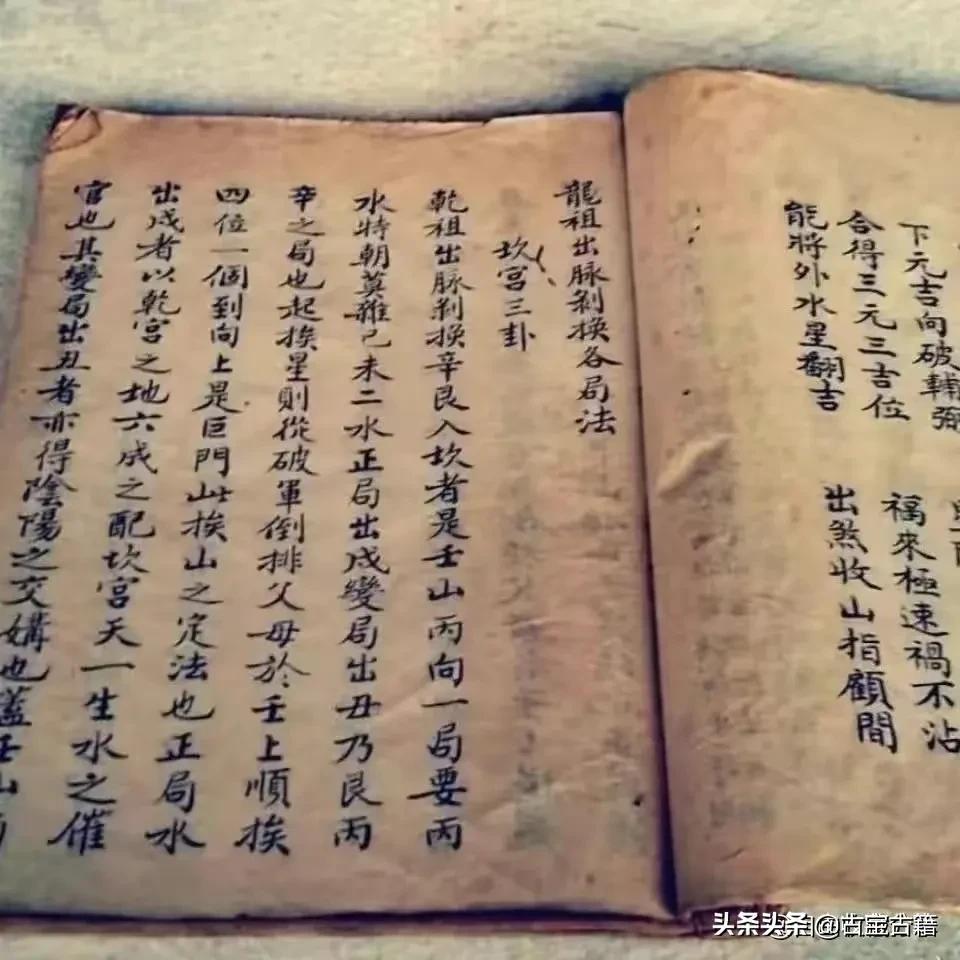 下元吉向破輔弼
合得三元三吉位 福來極速禍不沾
能將外水星翻吉 出煞收山指顧間
龍祖出脉剝換各局法
坎宮三卦
乾祖出脉剝換辛艮入坎者是壬山丙向一局要丙
水特朝莫雜己未二水正局出戌變局出丑乃艮丙
辛之局也起挨星則從破軍倒排父母於壬上順挨
四位一個到向上是巨門此挨山之定法也正局水
出戌者以乾宮之地六成之配坎宮天一生水之催
官也其變局出丑者亦得陰陽之交媾也蓋壬山
头条头条@古籍